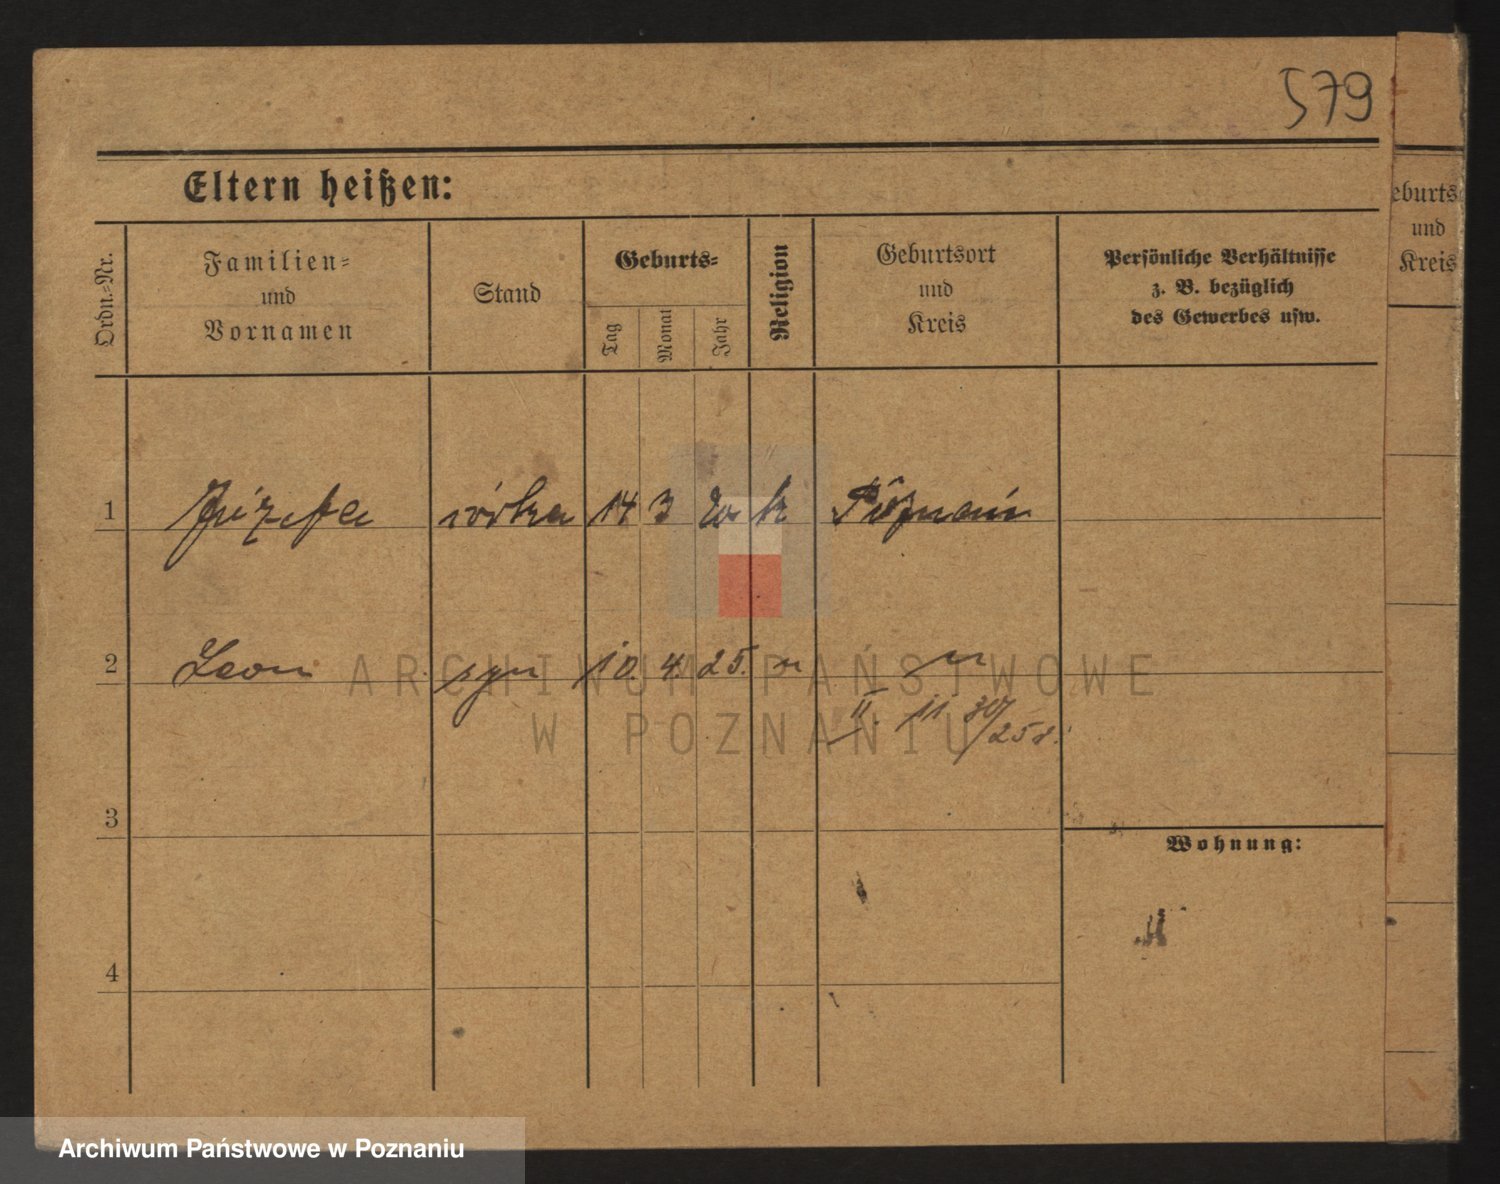 579
Eltern heißen:
Ordn.-Nr.
Familien-
und
Vornamen
Stand
Geburts-
Tag
Monat
Jahr
Religion
Geburtsort
und
Kreis
Persönliche Verhältnisse
z. B. bezüglich
des Gewerbes usw.
eburts
und
Kreis
1 Józefa córka 14 3 20 k Poznań
2 Leon syn 10. 4. 25. " "
II. 11 30/25 r.
3
Wohnung:
4
ARCHIWUM PAŃSTWOWE
W POZNANIU
Archiwum Państwowe w Poznaniu